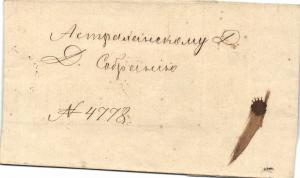 Астраханскому Д.
Д. Собранию
№ 4778